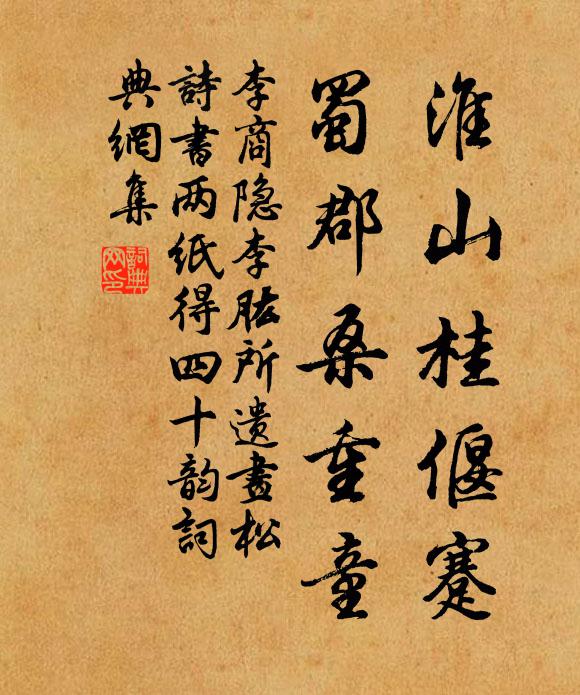 淮山桂偃蹇
蜀郡桑重童
李商隐李肱所遺畫松
詩書两纸得四十韵詞
典網集
詞典网印